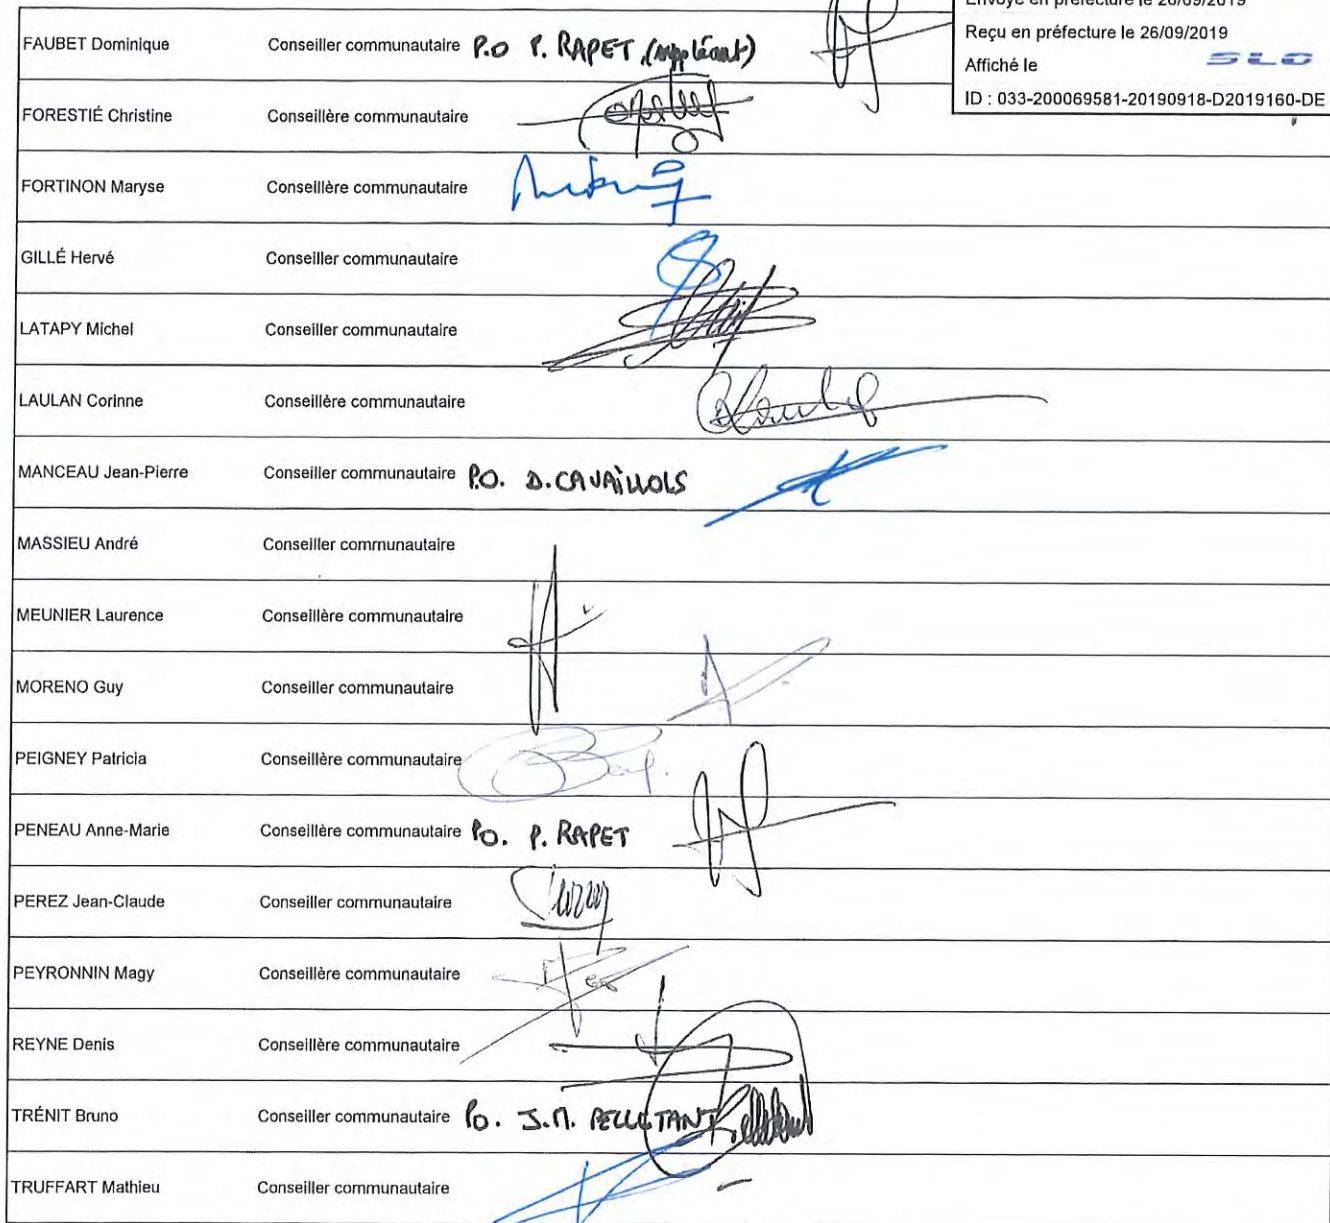 Envoyé en préfecture le 26/09/2019
Reçu en préfecture le 26/09/2019
Affiché le SLO
ID : 033-200069581-20190918-D2019160-DE
FAUBET Dominique Conseiller communautaire P.O P. RAPET (suppléant)
FORESTIÉ Christine Conseillère communautaire
FORTINON Maryse Conseillère communautaire
GILLÉ Hervé Conseiller communautaire
LATAPY Michel Conseiller communautaire
LAULAN Corinne Conseillère communautaire
MANCEAU Jean-Pierre Conseiller communautaire P.O. D. CAVAILLOLS
MASSIEU André Conseiller communautaire
MEUNIER Laurence Conseillère communautaire
MORENO Guy Conseiller communautaire
PEIGNEY Patricia Conseillère communautaire
PENEAU Anne-Marie Conseillère communautaire PO. P. RAPET
PEREZ Jean-Claude Conseiller communautaire
PEYRONNIN Magy Conseillère communautaire
REYNE Denis Conseillère communautaire
TRÉNIT Bruno Conseiller communautaire PO. J.M. PELLETANT
TRUFFART Mathieu Conseiller communautaire